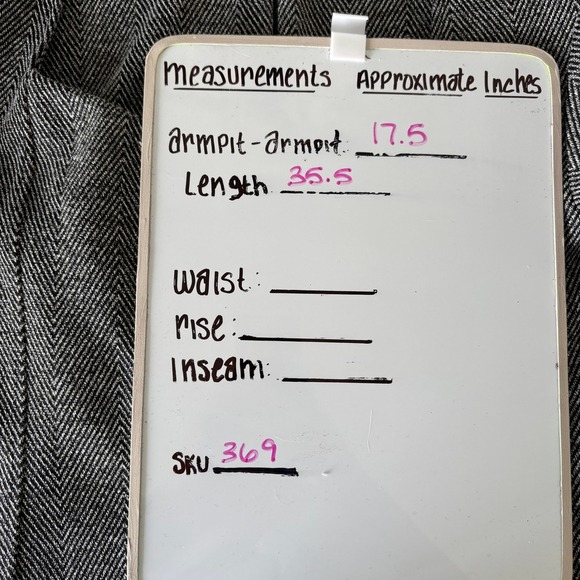 measurements Approximate Inches
armpit-armpit: 17.5
Length 35.5
waist:
rise:
Inseam:
SKU 369